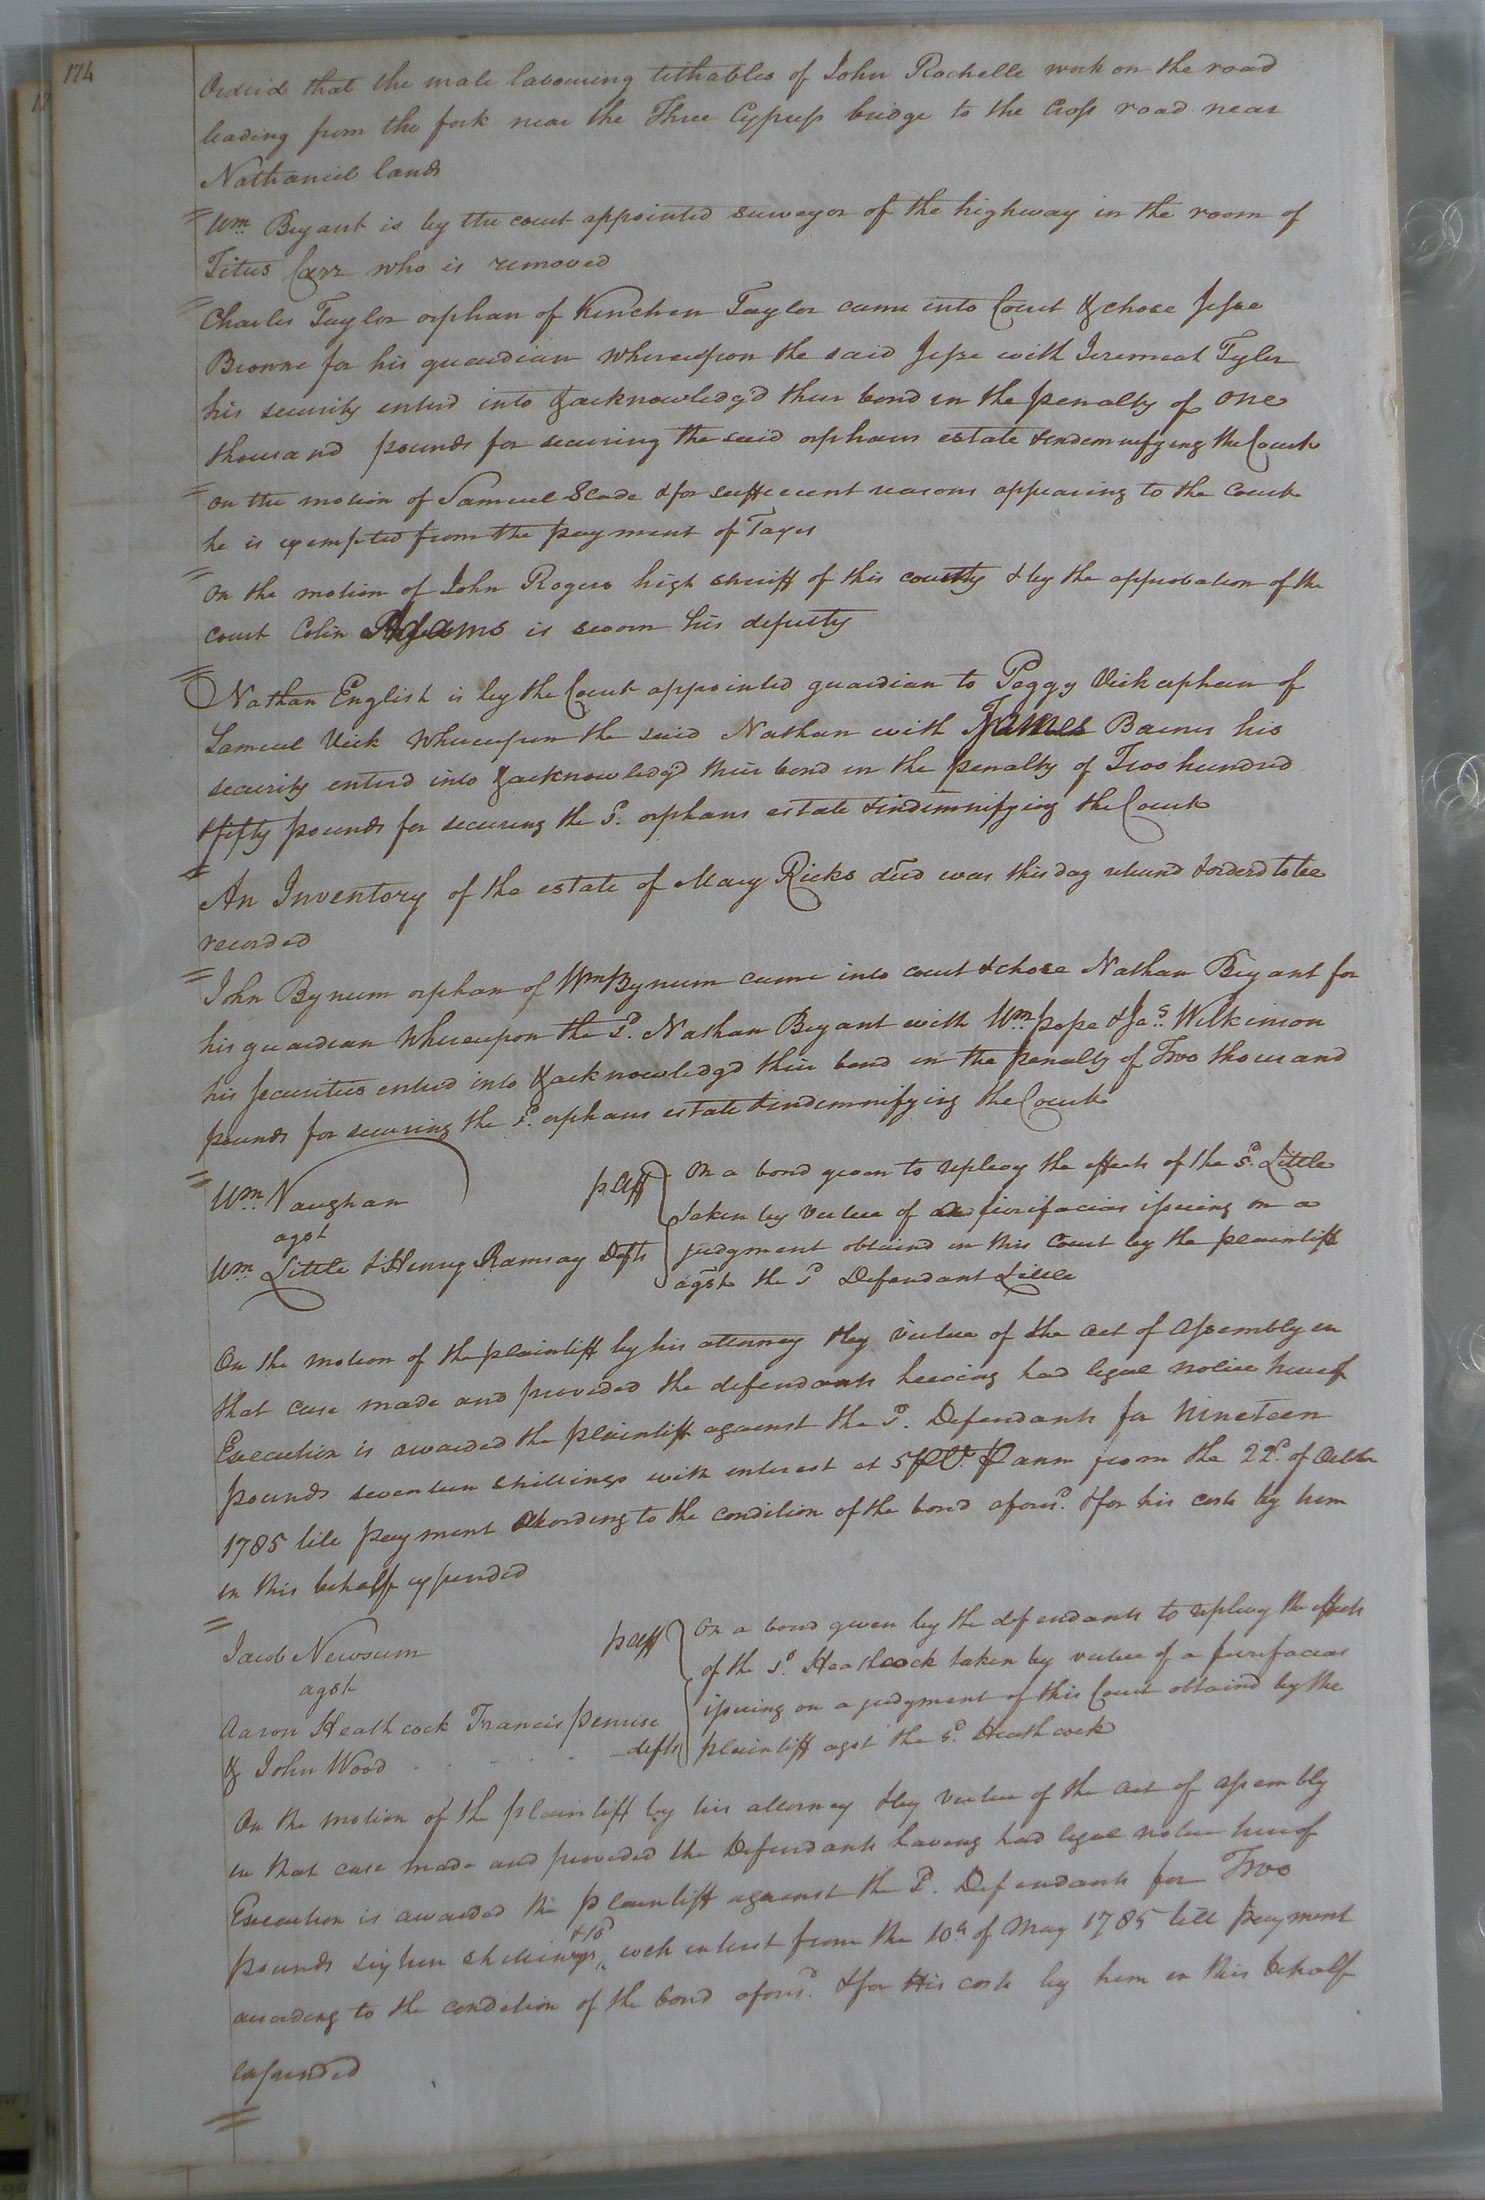 174
Orderd that the male labouring tithables of John Rochelle work on the road
leading from the fork near the Three Cypress bridge to the Cross road near
Nathaniel lands
Wm. Bryant is by the court appointed surveyor of the highway in the room of
Titus Carr who is removed
Charles Taylor orphan of Kinchen Taylor came into Court & chose Jesse
Browne for his guardian whereupon the said Jesse with Jeremeah Tyler
his security enterd into & acknowledg'd their bond in the penalty of one
thousand pounds for securing the said orphans estate & indemnifying the Court
on the motion of Samuel Slade & for suffecient reasons appearing to the Court
he is exempted from the payment of Taxes
on the motion of John Rogers high sheriff of this county & by the approbation of the
court Colin Adams is sworn his deputy
Nathan English is by the Court appointed guardian to Peggy Vick orphan of
Samuel Vick whereupon the said Nathan with James Barnes his
security enterd into & acknowledg'd their bond in the penalty of Two hundred
& fifty pounds for securing the sd. orphans estate & indemnifying the Court
An Inventory of the estate of Mary Ricks decd was this day returnd & orderd to be
recorded
John Bynum orphan of Wm Bynum came into court & chose Nathan Bryant for
his guardian whereupon the sd. Nathan Bryant with Wm. pope & Jas. Wilkinson
his securities enterd into & acknowledgd their bond in the penalty of Two thousand
pounds for securing the sd. orphans estate & indemnifying the Court
Wm. Vaughan plff
agst
Wm. Little & Henry Ramsay Defts
on a bond given to replevy the effects of the sd. Little
taken by vertue of a fierifacias issuing on a
judgment obtaind in this Court by the plaintiff
agst the sd Defendant Little
On the motion of the plaintiff by his attorney & by virtue of the act of assembly in
that case made and provided the defendants having had legal notice hereof
Execution is awarded the plaintiff against the sd. Defendants for nineteen
pounds seventeen shillings with interest at 5 PCt. P ann from the 22d. of October
1785 till payment according to the condition of the bond aforesd. & for his costs by him
in this behalf expended
Jacob Newsum plff
agst
Aaron Heathcock Francis
& John Wood defts
on a bond given by the defendants to replevy the effects
of the sd. Heathcock taken by vertue of a fierifacias
issuing on a judgment of this Court obtaind by the
plaintiff agst the sd. Heathcock
On the motion of the plaintiff by his attorney & by vertue of the act of assembly
in that case made and provided the Defendants having had legal notice hereof
Execution is awarded the plaintiff against the sd. Defendants for Two
pounds sixteen shillings with interest from the 10th of May 1785 till payment
according to the condition of the bond aforesd. & for His costs by him in this behalf
expended